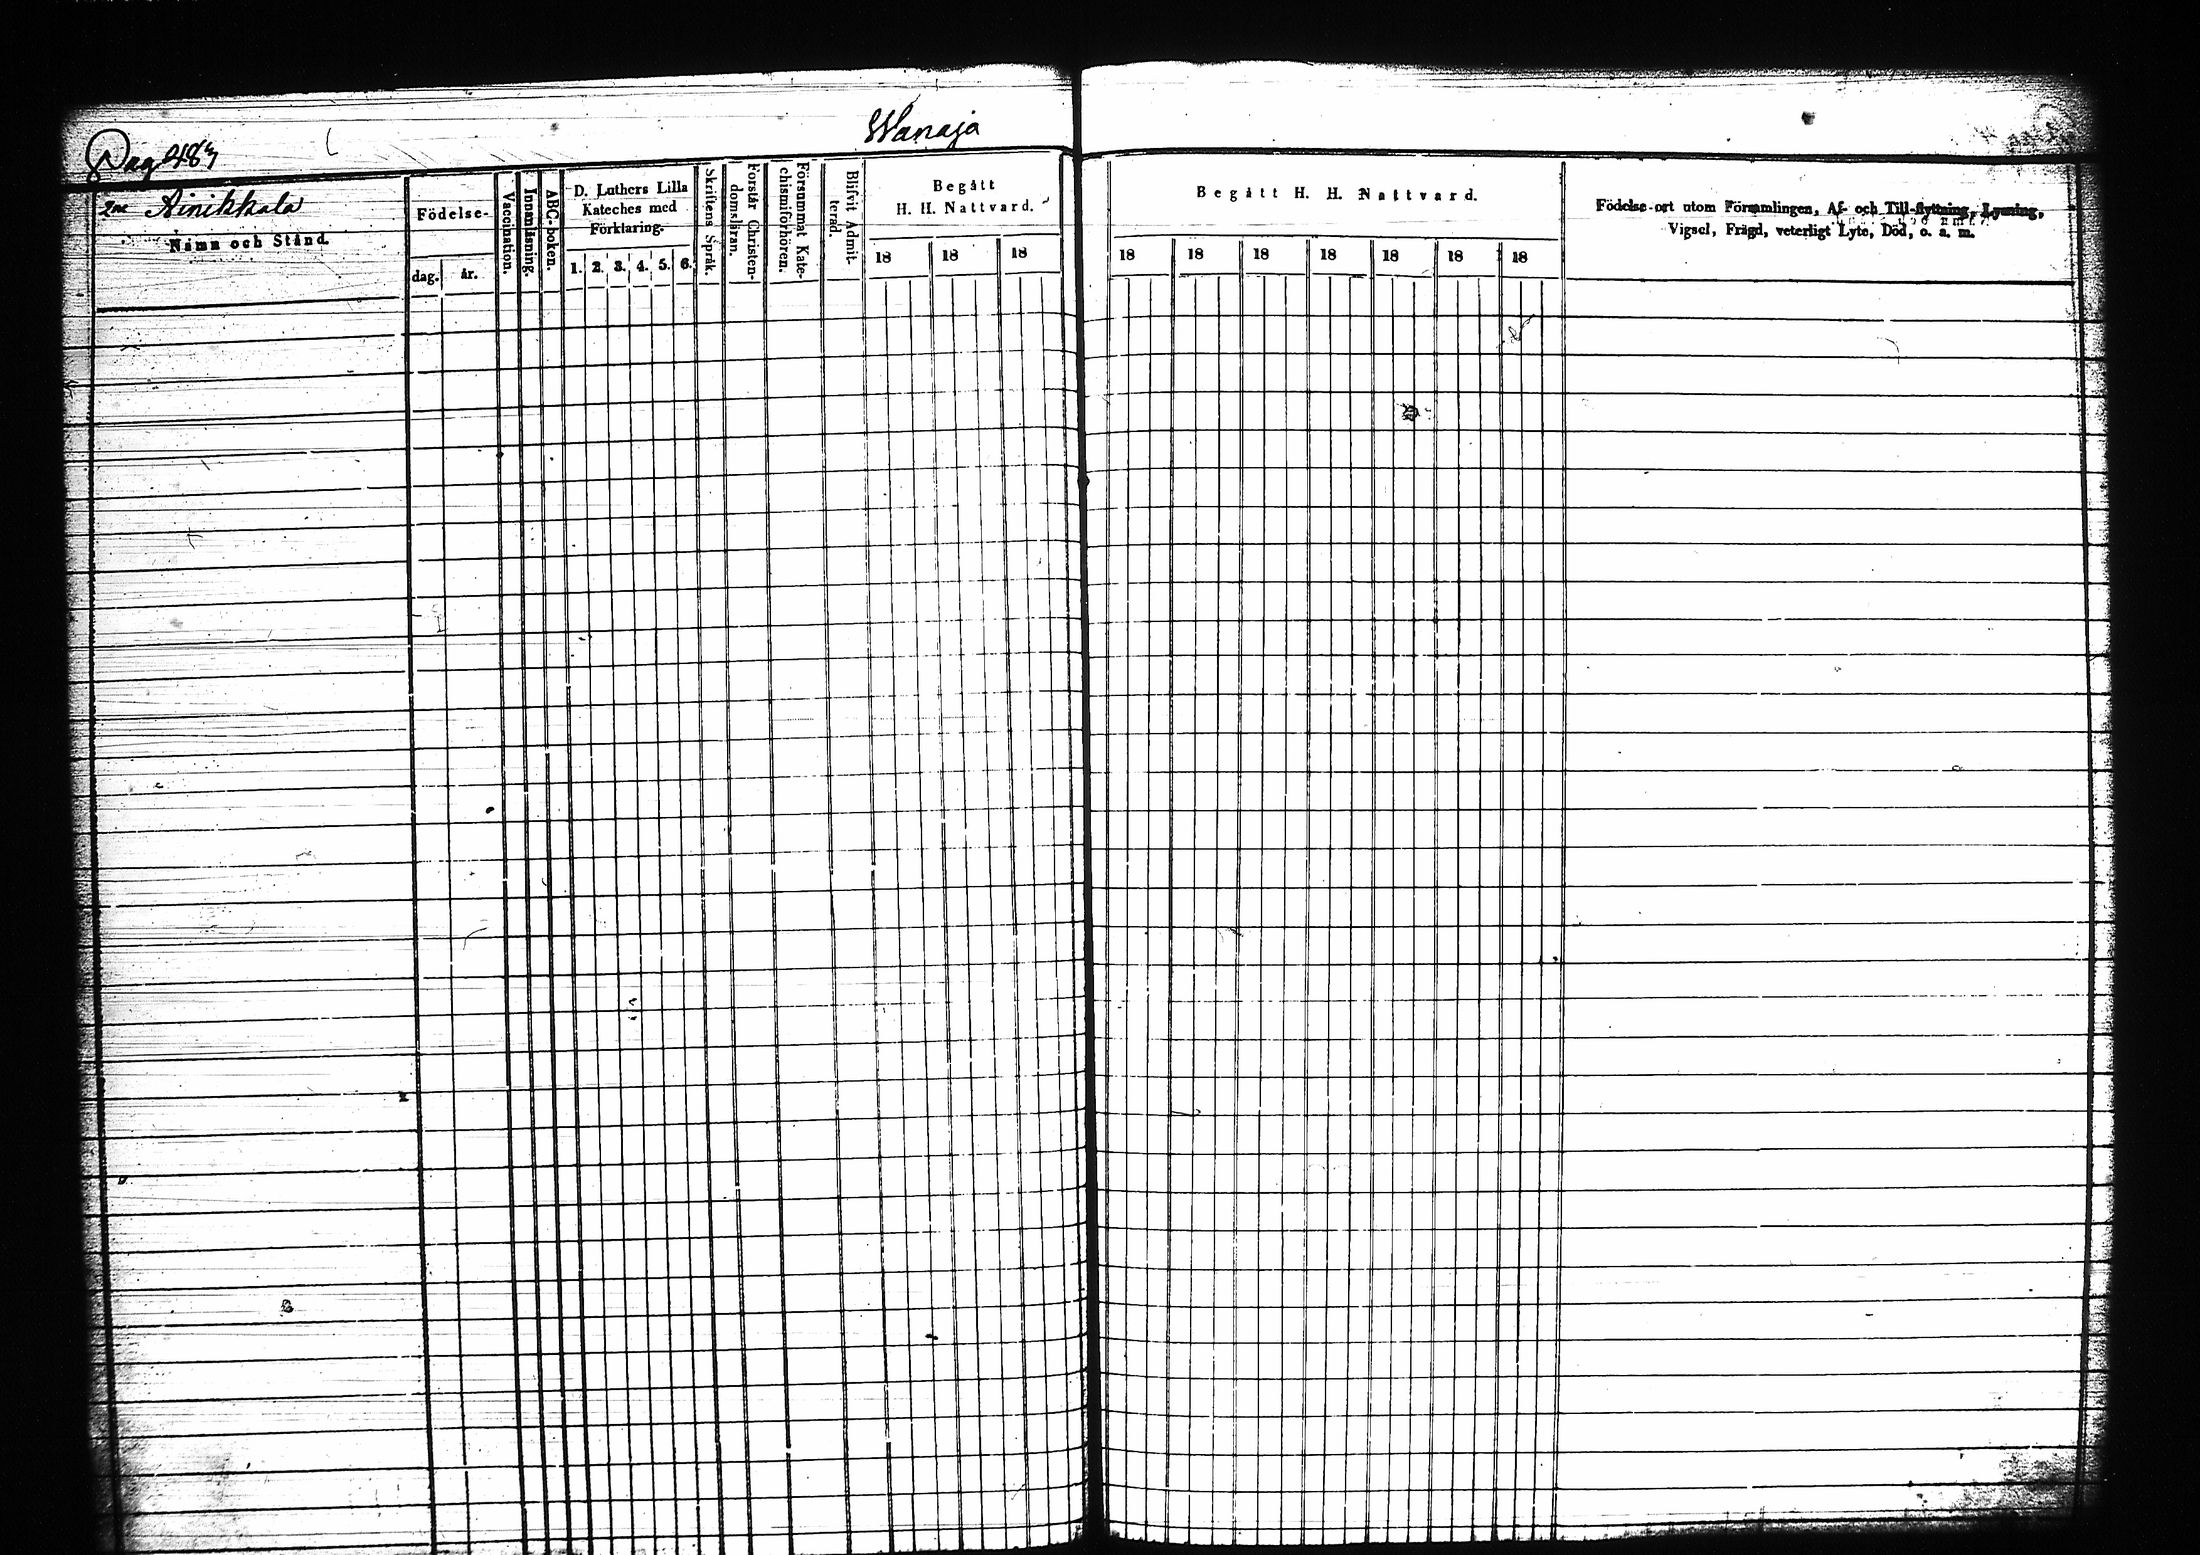 Wanaja
Pag 487
2ne Ainikkala
Namn och Stånd.
Födelse-
dag.
år.
Vaccination.
Innanläsning.
ABC-boken.
D. Luthers Lilla
Kateches med
Förklaring.
1. 2. 3. 4. 5. 6.
Skriftens Språk.
Förstår Christen-
domsläran.
Försummat Kate-
chismiförhören.
Blifvit Admit-
terad.
Begått
H. H. Nattvard.
18 18 18
Begått H. H. Nattvard.
18 18 18 18 18 18 18
Födelse-ort utom Församlingen, Af- och Till-flyttning, Lysning,
Vigsel, Frägd, veterligt Lyte, Död, o. a. m.